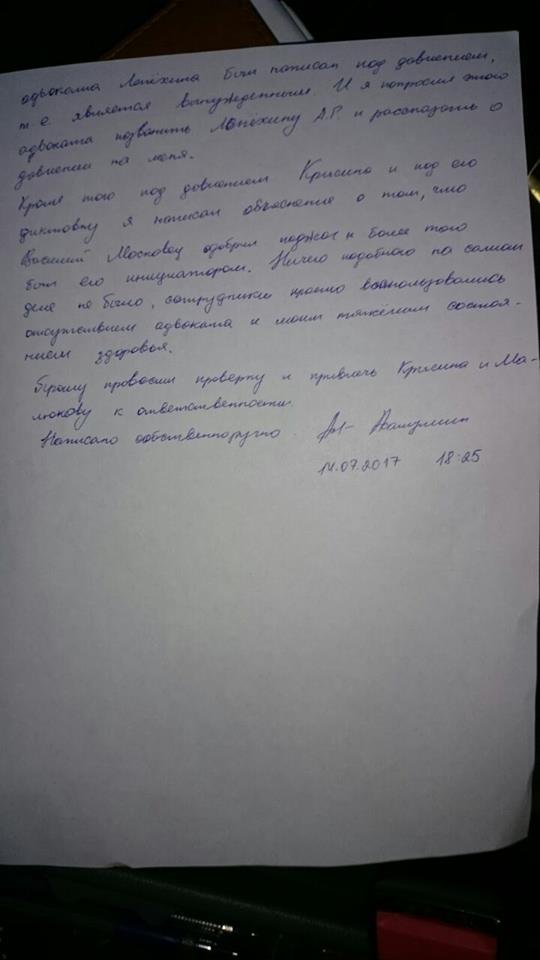 адвоката Лепёхина был написан под давлением,
т е является вынужденным. И я попросил этого
адвоката позвонить Лепёхину А.Г. и рассказать о
давлении на меня.
Кроме того под давлением Крысина и под его
диктовку я написал объяснение о том, что
Василий Московец одобрил поджог и более того
был его инициатором. Ничего подобного на самом
деле не было, сотрудники просто воспользовались
отсутствием адвоката и моим тяжёлым состоя-
нием здоровья.
Прошу провести проверку и привлечь Крысина и Ма-
люкову к ответственности.
Написано собственноручно.
14.07.2017 18:25